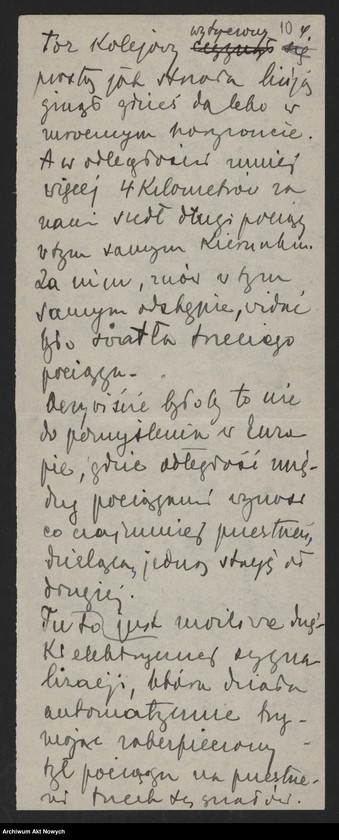 10
wytyczony
Tor kolejowy ciągnął się
prostą jak struna liniją
ginął gdzieś daleko w
mrocznym horyzoncie.
A w odległości mniej
więcej 4 kilometrów za
nami szedł długi pociąg
w tym samym kierunku.
Za nim, znów w tym
samym odstępie, widać
było światła trzeciego
pociągu.
Oczywiście byłoby to nie
do pomyślenia w Euro
pie, gdzie odległość mię-
dzy pociągami wynosi
co najmniej przestrzeń,
dzielącą jedną stację od
drugiej.
Tu to jest możliwe dzię-
ki elektrycznej sygna-
lizacji, która działa
automatycznie trzy-
mając zabezpieczony
tył pociągu na przestrze-
ni trzech sygnałów.
Archiwum Akt Nowych